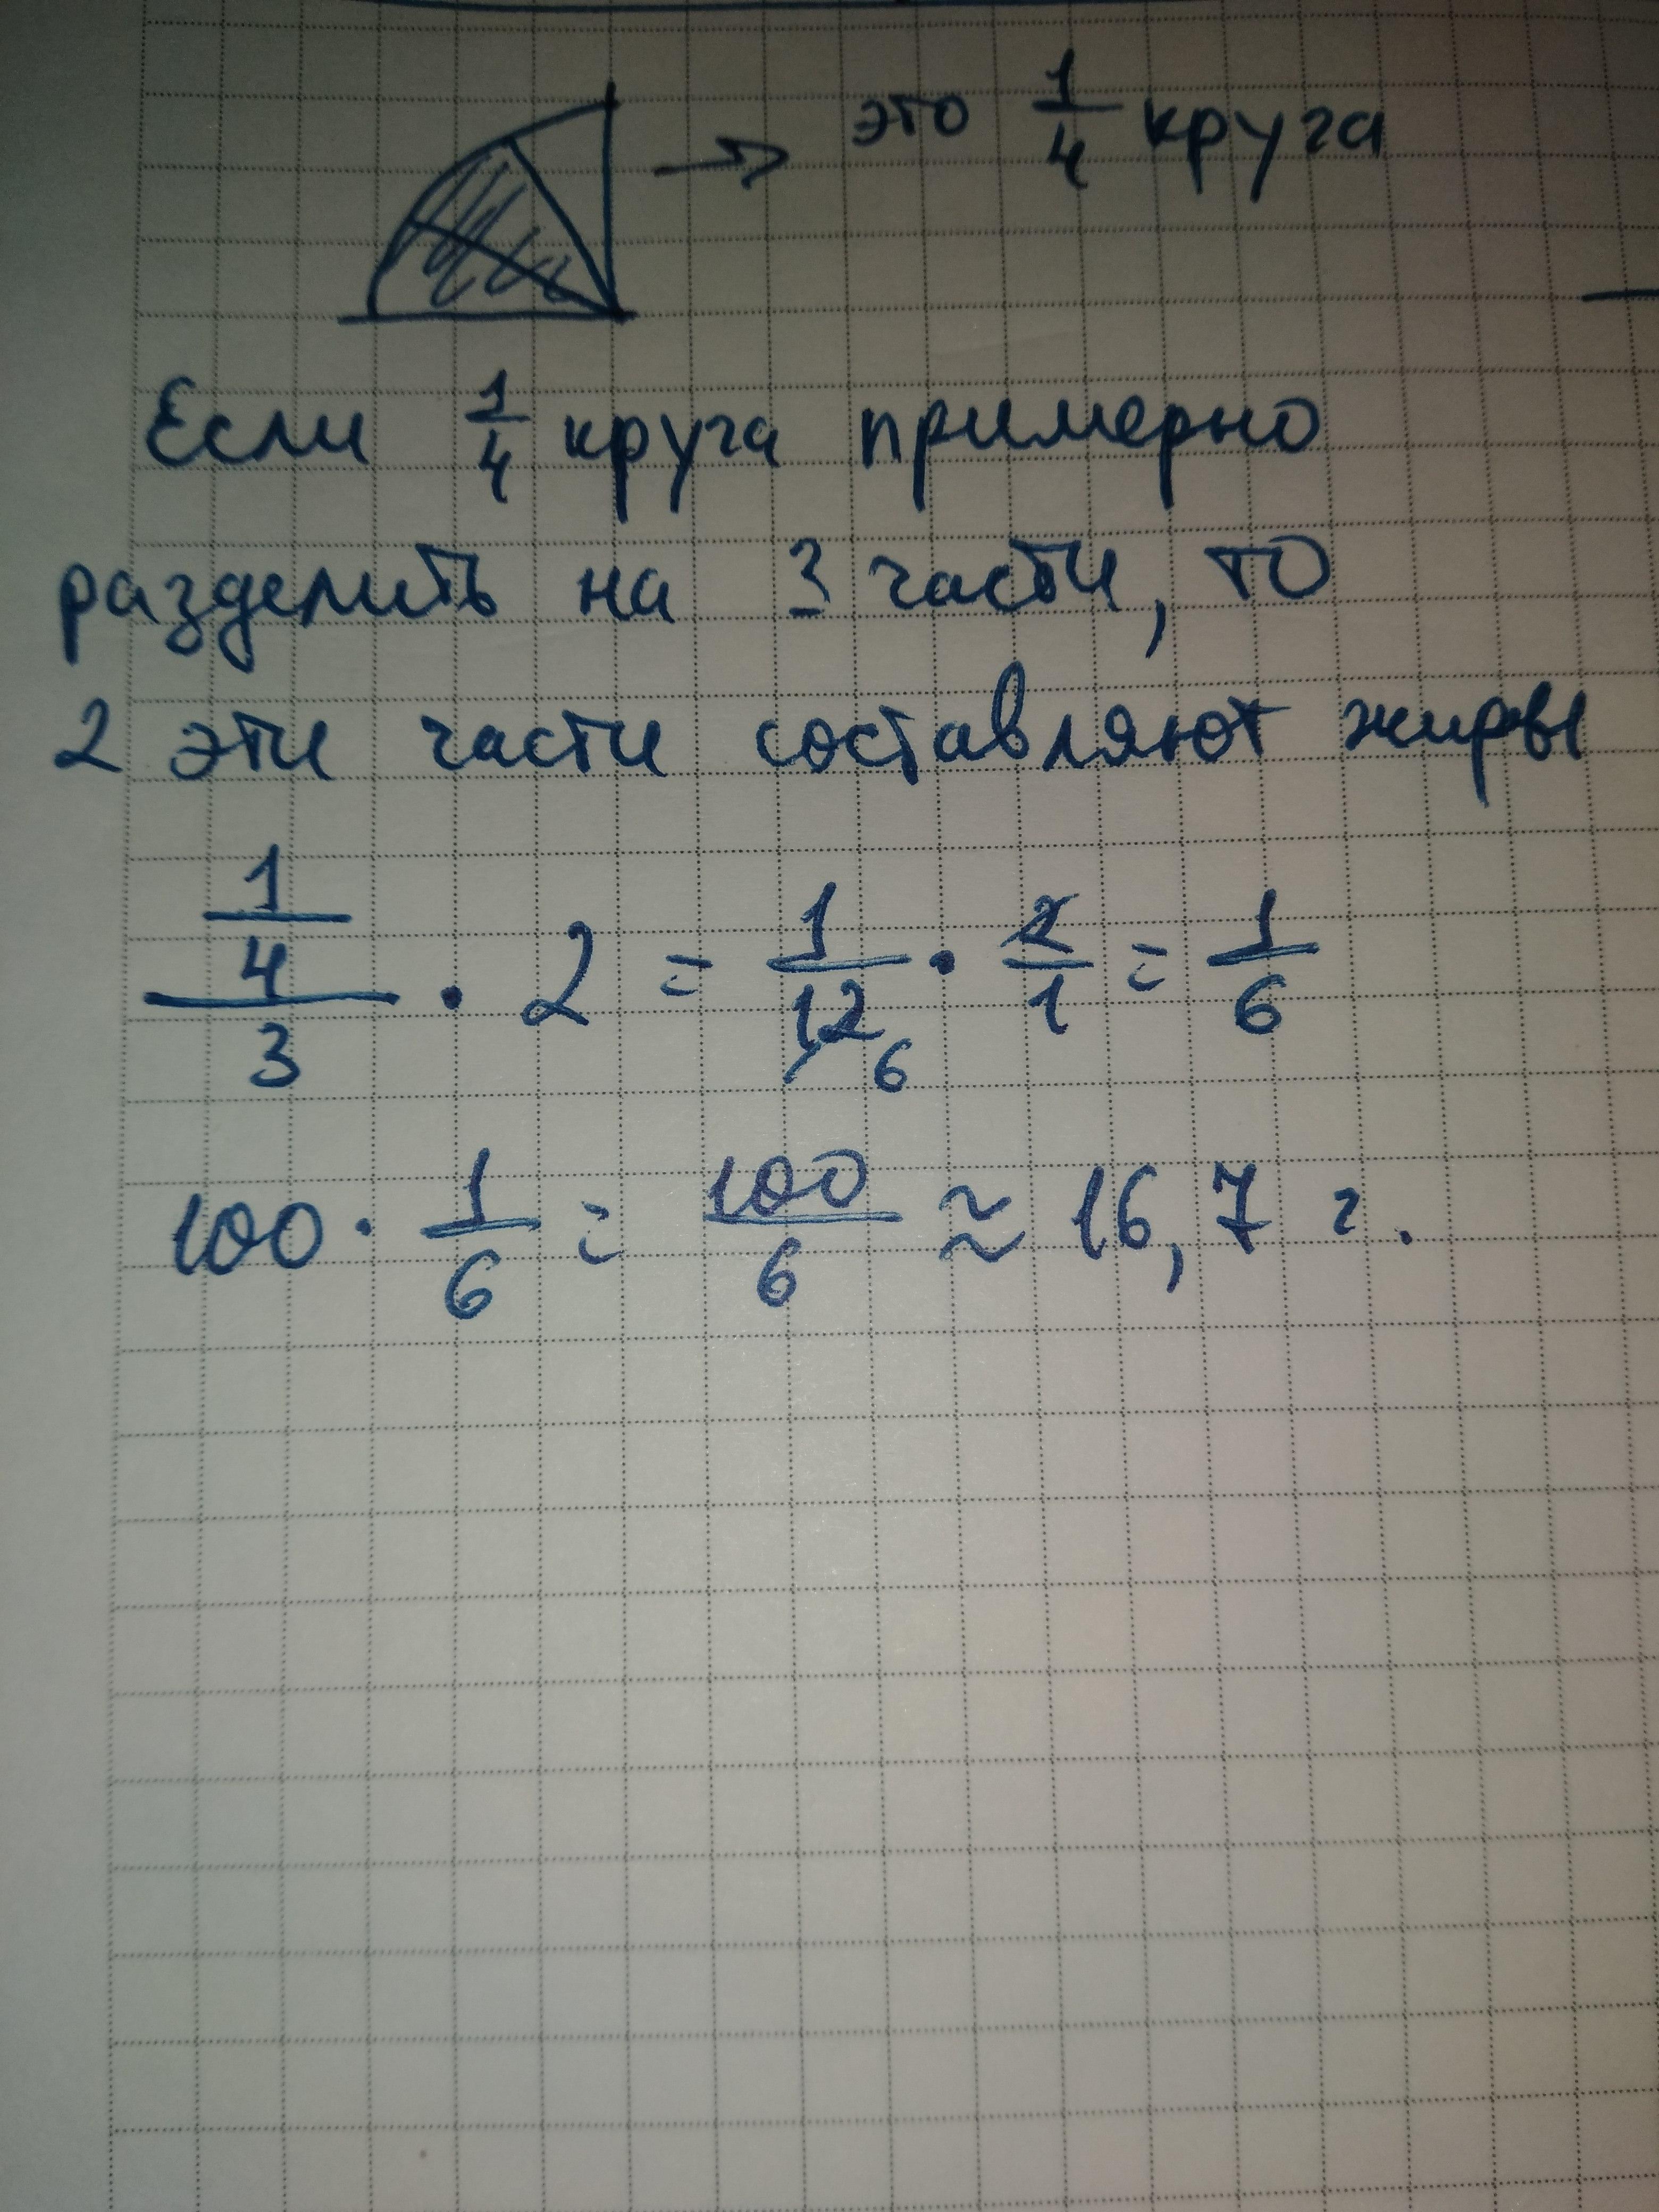 это 1/4 круга
Если 1/4 круга примерно
разделить на 3 части, то
2 эти части составляют жиры
1/4/3 · 2 = 1/12 6 · 2/1 = 1/6
100 · 1/6 = 100/6 ≈ 16,7 г.